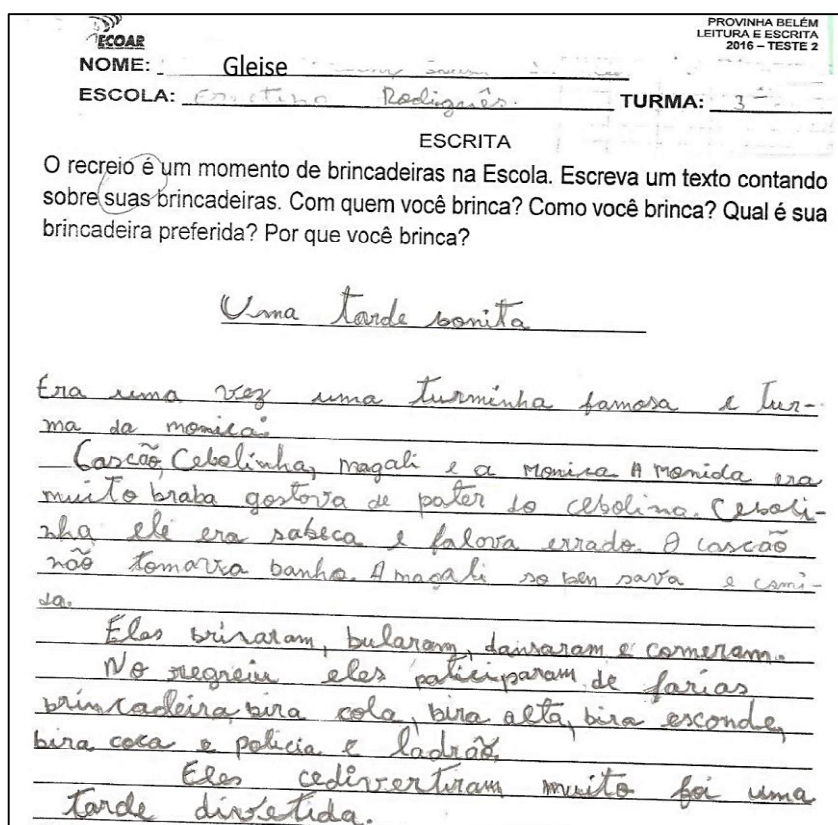 ECOAR
PROVINHA BELÉM
LEITURA E ESCRITA
2016 – TESTE 2
NOME: Gleise
ESCOLA: Rodriguês. TURMA: 3ª
ESCRITA
O recreio é um momento de brincadeiras na Escola. Escreva um texto contando
sobre suas brincadeiras. Com quem você brinca? Como você brinca? Qual é sua
brincadeira preferida? Por que você brinca?
Uma tarde bonita
Era uma vez uma turminha famosa e tur-
ma da monica:
Cascão, Cebolinha, magali e a Monica A monida era
muito braba gostova de pater do cebolina. Ceboli-
nha ele era sabeca e falova errado. O cascão
não tomavza banho. A magali so pen sava e comi-
da.
Eles brinaram, bularam, dansaram e comeram.
No regreiu eles paticiparam de farias
brincadeira, bira cola, bira alta, bira esconde,
bira coca e policia e ladrão.
Eles cedivertiram muito foi uma
tarde divetida.